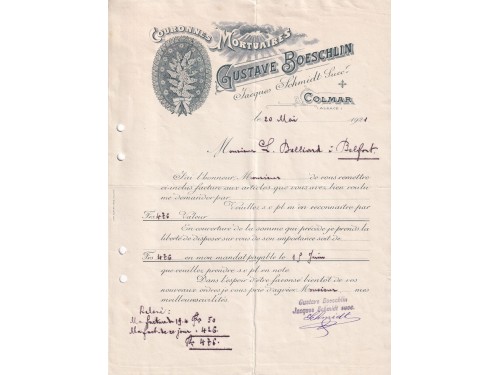 COURONNES
MORTUAIRES
GUSTAVE BOESCHLIN
Jacques Schmidt Succr
COLMAR
le 20 Mai 1921
Monsieur L. Belliard à Belfort.
J'ai l'honneur, Monsieur de vous remettre
ci-inclus facture aux articles que vous avez bien voulu
me demander par
Veuillez s.v.pl. m'en reconnaître par
Frs 476 Valeur
En couverture de la somme que précède je prends la
liberté de disposer sur vous de son importance suit de
Frs 476 en mon mandat payable le 25 Juin
que veuillez prendre s.v.pl. en note.
Dans l'espoir d'être favorisé bientôt de vos
nouveaux ordres je vous prie d'agréer Monsieur, mes
meilleures civilités.
Gustave Boeschlin
Jacques Schmidt succ.
Schmidt
Relevé:
Ma facture du 19.4 Frs 50
Ma fact. de ce jour " 426
Frs 476.